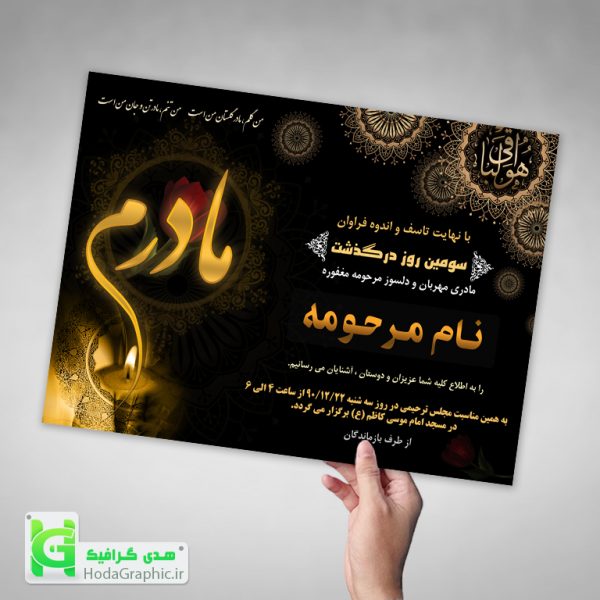 من گلم ، مادر گلستان من است    من تنم ، مادر تن و جان من است
هوالباقی
مادرم
با نهایت تاسف و اندوه فراوان
سومین روز درگذشت
مادری مهربان و دلسوز مرحومه مغفوره
نام مرحومه
را به اطلاع کلیه شما عزیزان و دوستان ، آشنایان می رسانیم.
به همین مناسبت مجلس ترحیمی در روز سه شنبه ۹۰/۱۲/۲۲ از ساعت ۴ الی ۶
در مسجد امام موسی کاظم (ع) برگزار می گردد.
از طرف بازماندگان
هدی گرافیک
HodaGraphic.ir